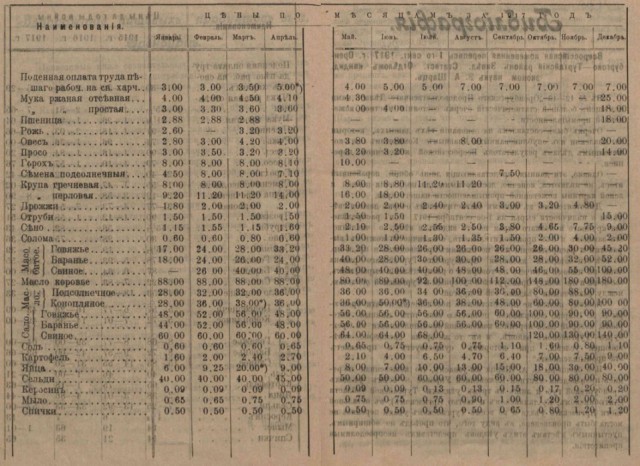 Наименованія.
ЦѢНЫ ПО
МѢСЯЦАМЪ 1917 ГОДЪ
Январь. Февраль. Мартъ. Апрѣль.
Май. Іюнь. Іюль. Августъ. Сентябрь. Октябрь. Ноябрь. Декабрь.
Поденная оплата труда пѣ-
шаго работ. на ск. харч. 3,00 3,00 3,50 5,00*) 4,00 5,00 5,00 7,00 7,00 7,00 7,00 7,00
Мука ржаная отсѣвная 4.00 4,00 4,50 4,10 4,30 — — — — — — 25,00
„ простая 3,00 3,30 3,60 4,00 — — — — — 18,00
Пшеница 2.88 2,88 2,88 18,00
Рожь 2,60 — 3,20 3,20
Овесъ 2,80 3,00 4,20 4,00 3,80 3,80 — 8,00 — — — 20,00
Просо 3,00 3,50 3,20 2,20 3,20 3,20 — — — — — 14,00
Горохъ 8,00 8,00 8,00 8,10 10,00
Сѣмена подсолнечныя 4,50 8,00 8,00 7,10 7,50
Крупа гречневая 8,00 8,00 8,00 8,00 8,00 8,80 11,20 11,20
„ перловая 9,20 11,20 11,20 14,00 16,00 48,00
Дрожжи 1,80 2,00 2,00 2,00 2,00 2,00 2,40 2,40 3,00 3,20 4,80
Отруби 1,50 1,50 1,50 1,50 1,50 1,50 — — — — — 15,00
Сѣно 1,15 1,55 1,15 1,60 2,10 2,50 2,50 2,50 3,80 4,65 7,75 9,00
Солома 0,60 0,60 0,80 0,60 1,00 1,00 1,30 1,35 1,50 2,00 4,00 2,00
Мясо битое.
Говяжье 17,00 24,00 28,00 33,20 33,20 28,00 26,00 26,00 26,00 26,00 30,00 45,20
Баранье 18,00 24,00 26,00 24,00 40,00 28,00 35,00 30,00 28,00 28,00 32,00 52,00
Свиное — 26,00 40,00 40,00 48,00 40,00 40,00 48,00 48,00 46,00 55,00 100,00
Масло коровье 88,00 88,00 88,00 88,00 80,00 80,00 92,00 100,00 112,00 148,00 180,00 180,00
Подсолнечное 28,00 32,00 32,00 36,00 36,00 36,00 34,00 36,00 37,00 80,00 88,00 —
Конопляное 28,00 36,00 38,00*) 36,00 36,00 50,00*) 36,00 38,00 48,00 60,00 80,00 100,00
Сало.
Говяжье 48,00 52,00 56,00 48,00 56,00 56,00 56,00 56,00 60,00 100,00 90,00 90,00
Баранье 44,00 52,00 56,00 48,00 56,00 56,00 56,00 56,00 60,00 100,00 90,00 90,00
Свиное 60,00 60,00 60,00 60,00 64,00 64,00 64,00 68,00 — 120,00 130,00 140,00
Соль 0,60 0,60 0,60 0,65 0,65 0,75 0,75 0,75 1,10 1,60 1,80 1,10
Картофель 1,60 2,00 2,40 2,70 2,10 4,00 6,50 4,70 6,40 7,00 7,50 9,00
Яйца 6,00 9,25 20,00*) 9,00 8,00 7,00 10,00 13,00 15,00 18,00 30,00 40,00
Сельди 40,00 40,00 40,00 45,00 50,00 50,00 60,00 60,00 60,00 80,00 80,00 80,00
Керосинъ 0,09 0,09 0,09 0,09 0,09 0,09 0,13 0,13 0,15 0,17 0,20 0,20
Мыло 0,65 0,65 0,75 0,75 0,75 0,75 0,75 0,90 1,00 1,20 2,00 2,00
Спички 0,50 0,50 0,50 0,50 0,50 0,50 0,50 0,50 0,65 0,80 1,20 1,20